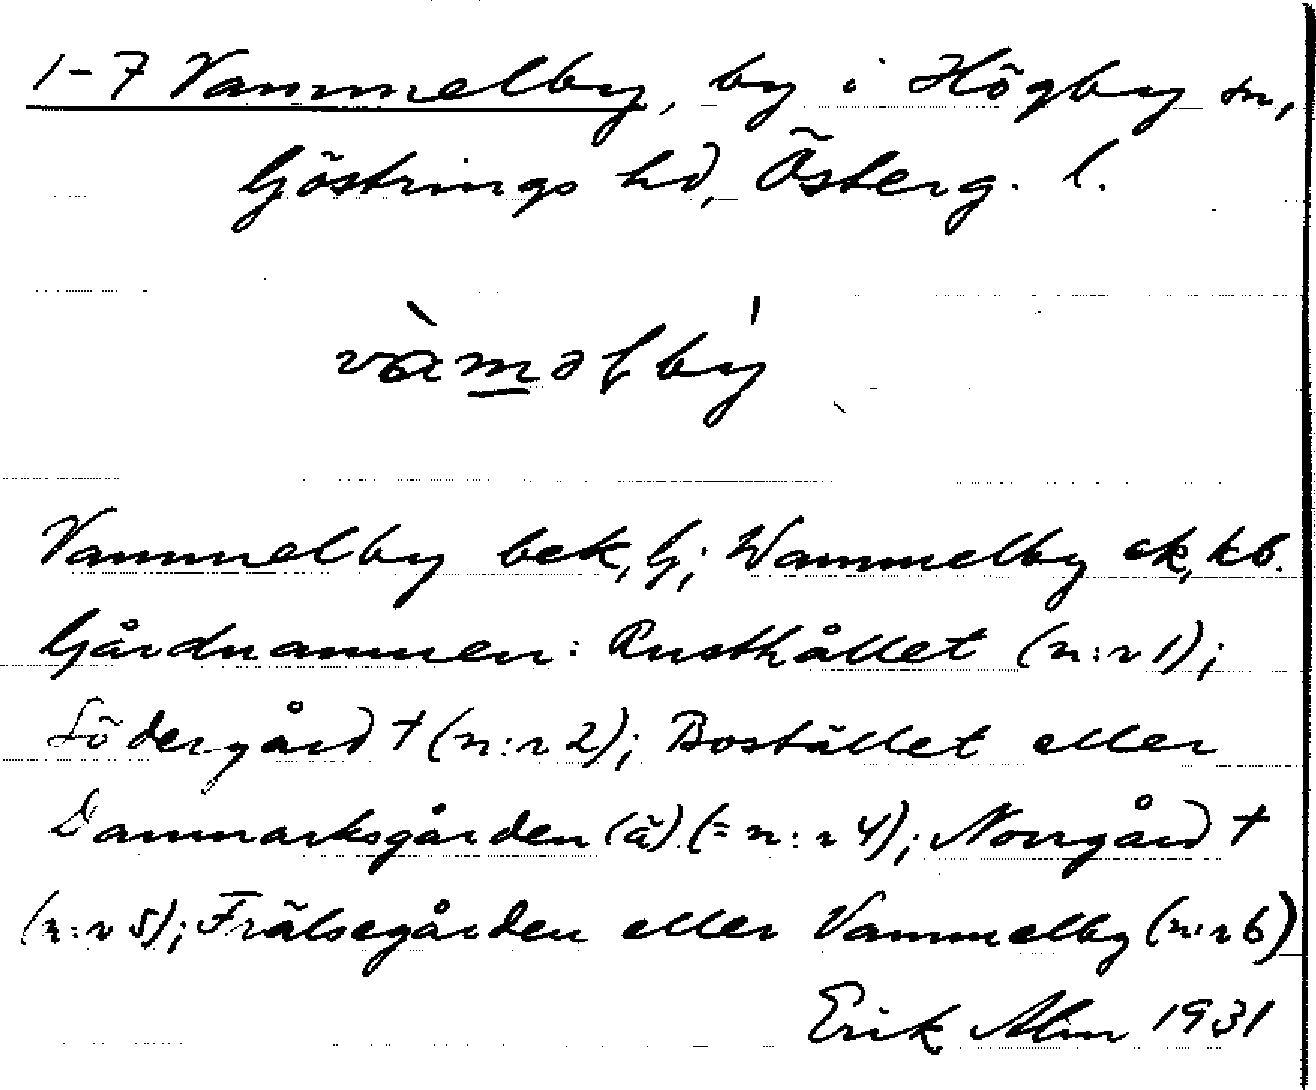 1-7 Vammelby, by i Högby sn,
Göstrings hd, Österg. l.
vàməlbý
Vammelby bek, Gj; Wammelby ek, kb.
Gårdnamnen: Rusthållet (n:r 1);
Södergård † (n:r 2); Bostället eller
Danmarksgården (ä) (= n:r 4); Norrgård †
(n:r 5); Frälsegården eller Vammelby (n:r 6)
Erik Alm 1931